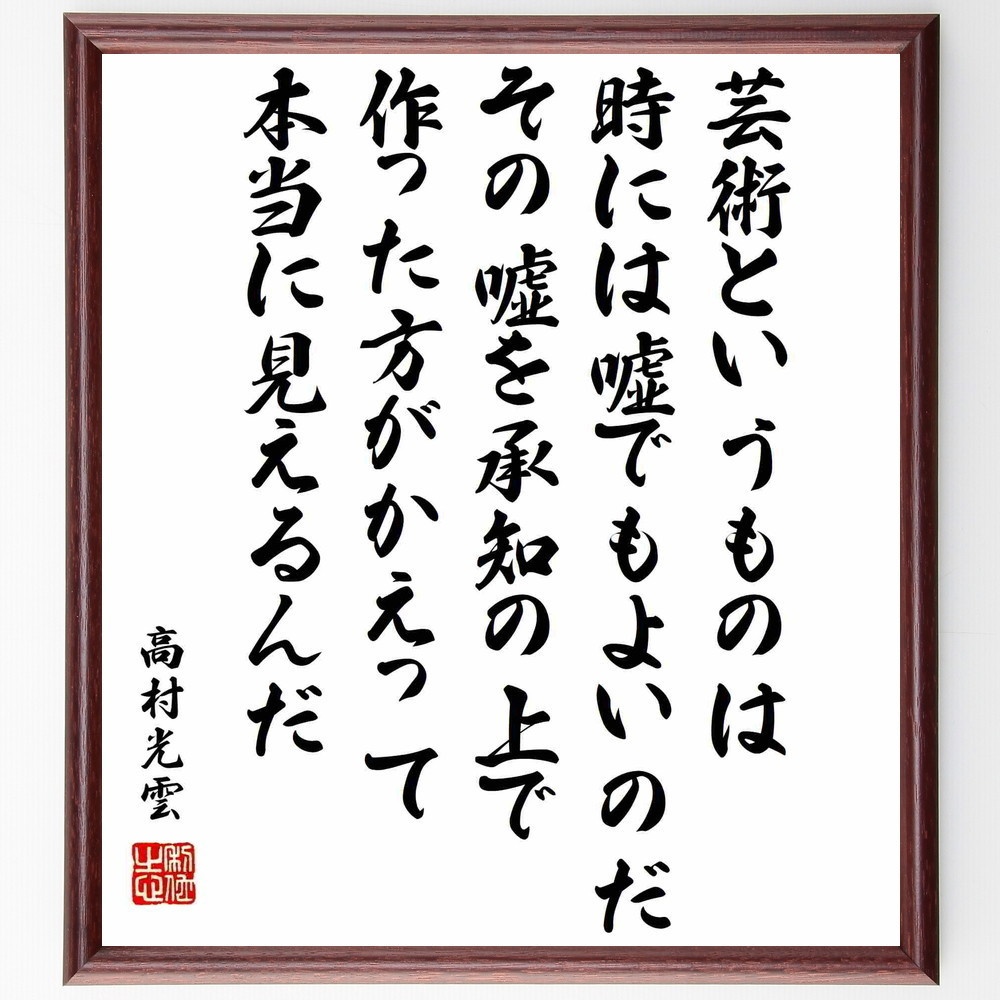 芸術というものは
時には嘘でもよいのだ
その嘘を承知の上で
作った方がかえって
本当に見えるんだ
高村光雲